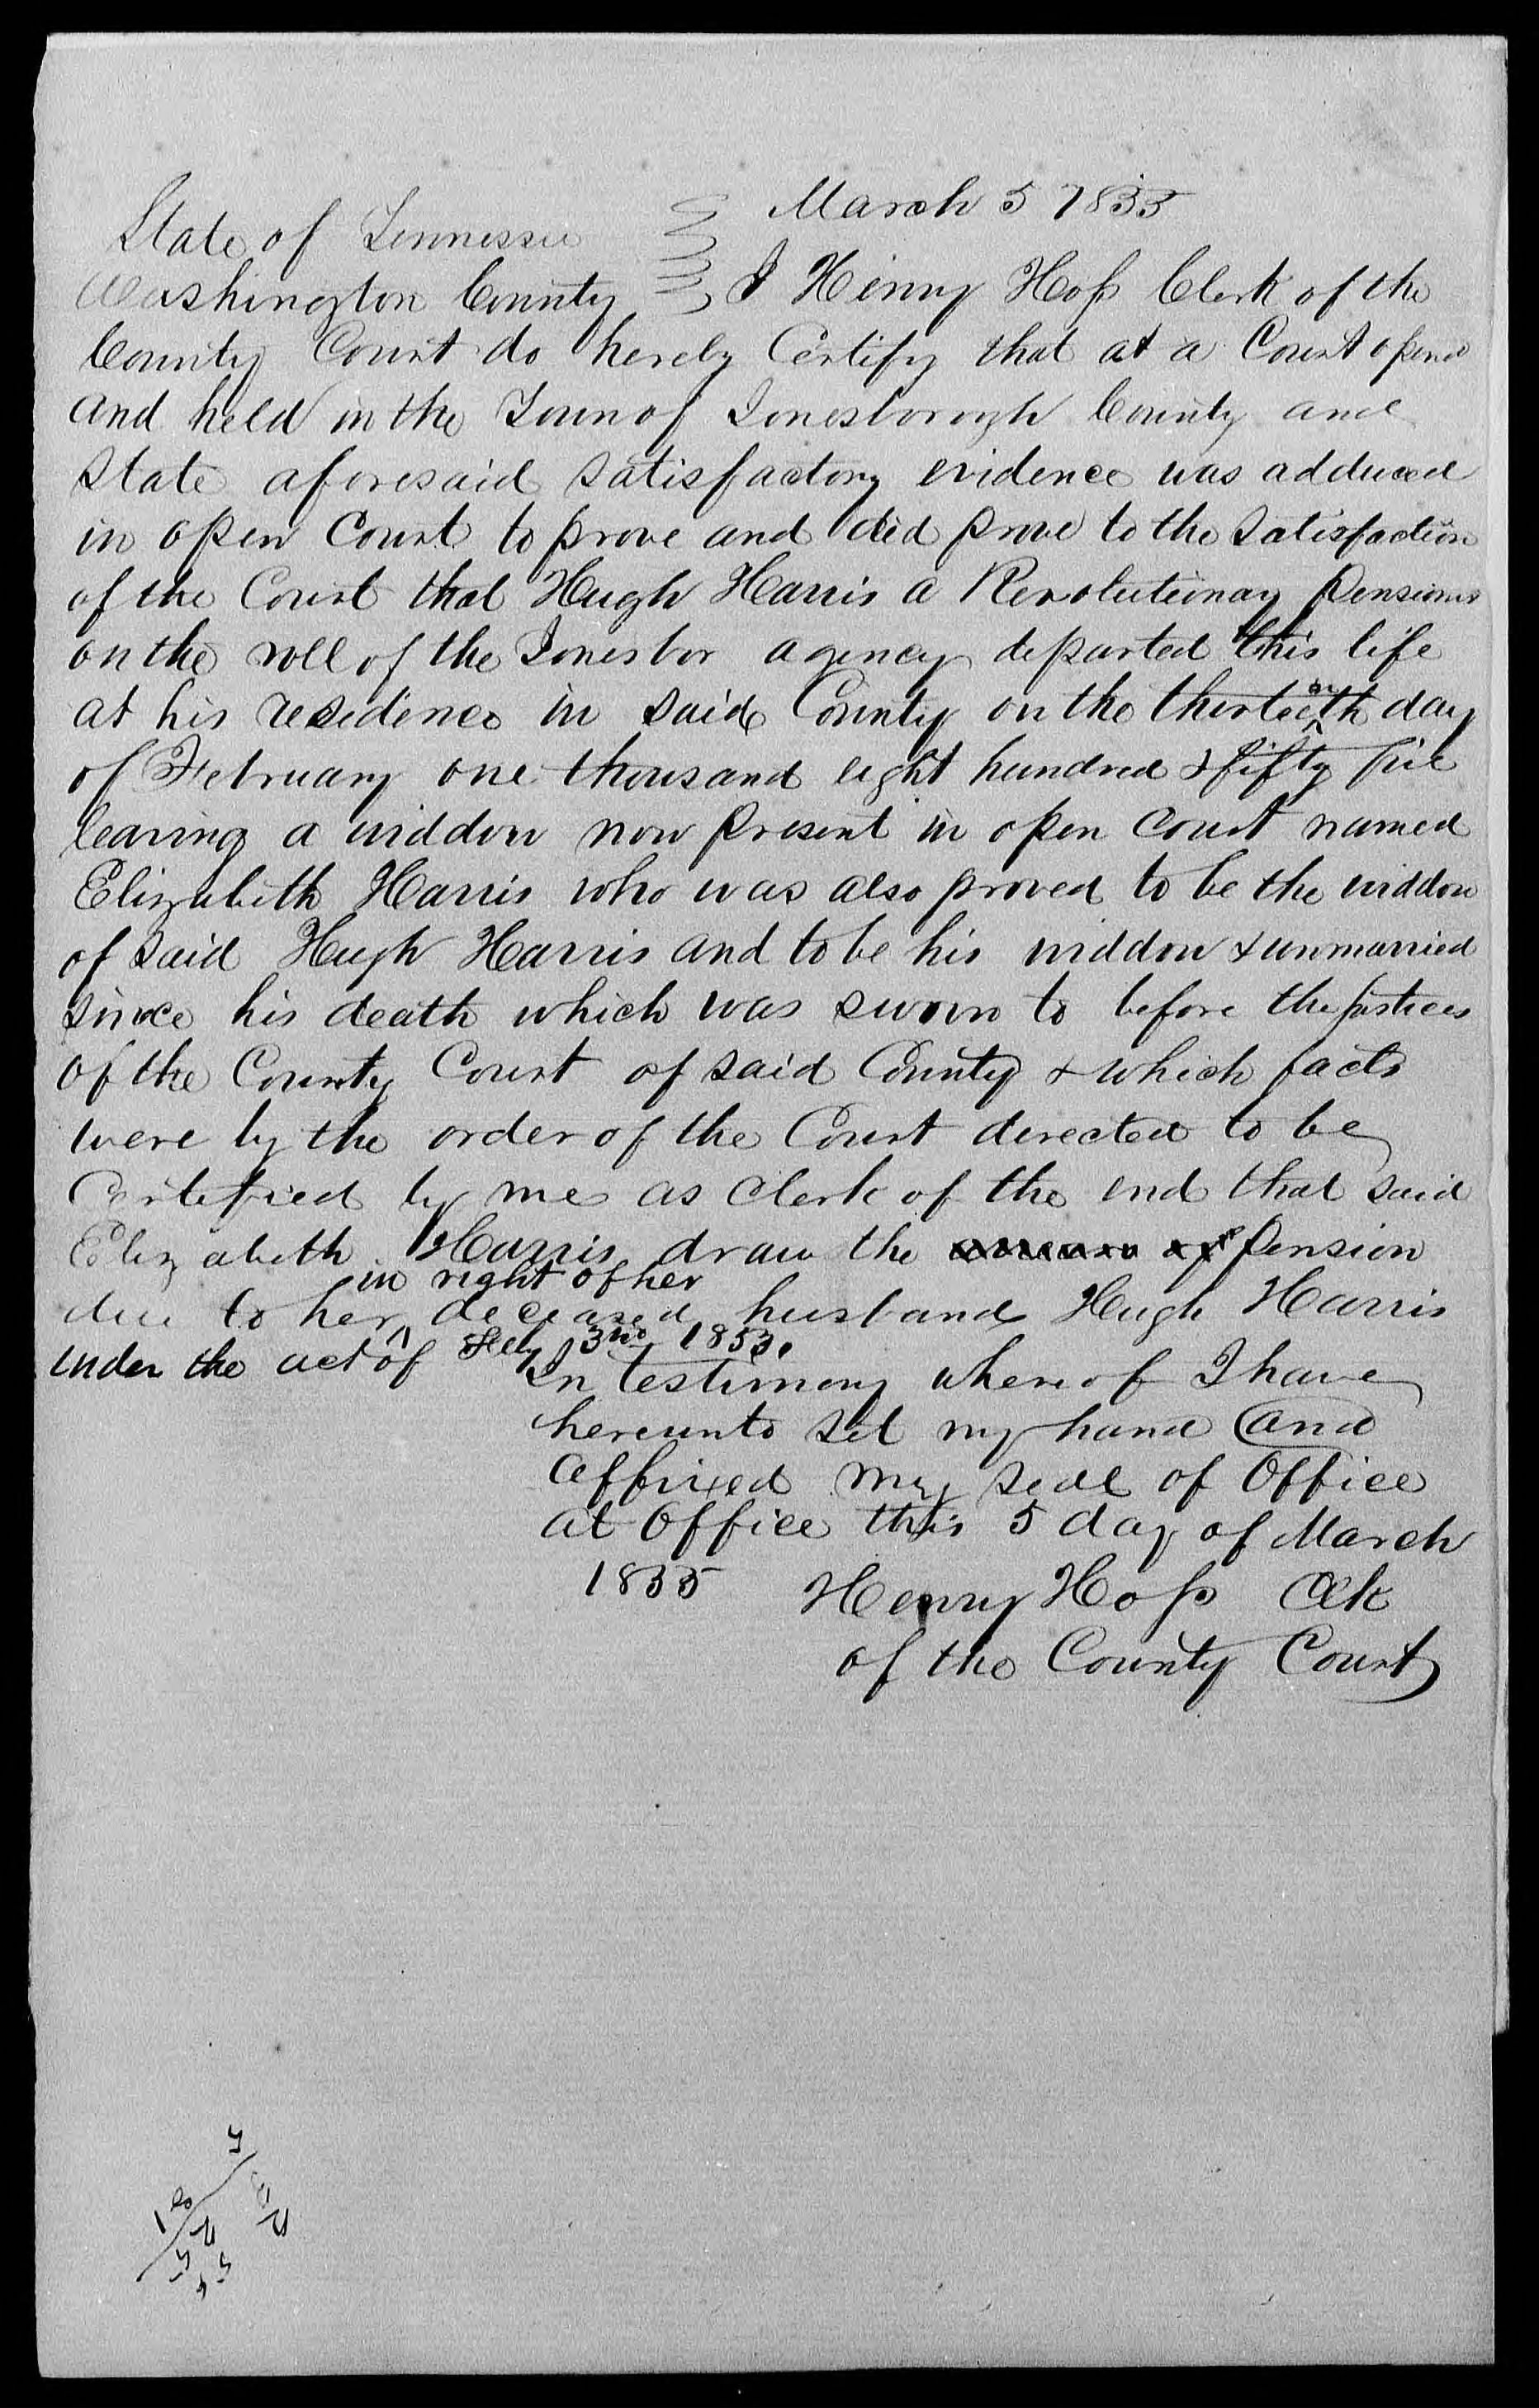 March 5 1855
State of Tennessee
Washington County I Henry Hoss Clerk of the
County Court do hereby Certify that at a Court opened
and held in the Town of Jonesborough County and
State aforesaid satisfactory evidence was adduced
in open Court to prove and did prove to the satisfaction
of the Court that Hugh Harris a Revolutionary Pensioner
on the roll of the Jonesbor agency departed this life
at his residence in said County on the thirteenth day
of February one thousand eight hundred & fifty five
leaving a widdow now present in open Court named
Elizabeth Harris who was also proved to be the widdow
of said Hugh Harris and to be his widdow & unmarried
since his death which was sworn to before the justices
of the County Court of said County & which facts
were by the order of the Court directed to be
Certified by me as clerk of the end that said
Elizabeth Harris draw the Pension
in right of her
due to her deceased husband Hugh Harris
under the act of Feby 3rd 1853.
In testimony whereof I have
hereunto set my hand and
affixed my seal of Office
at Office this 5 day of March
1855 Henry Hoss Clk
of the County Court